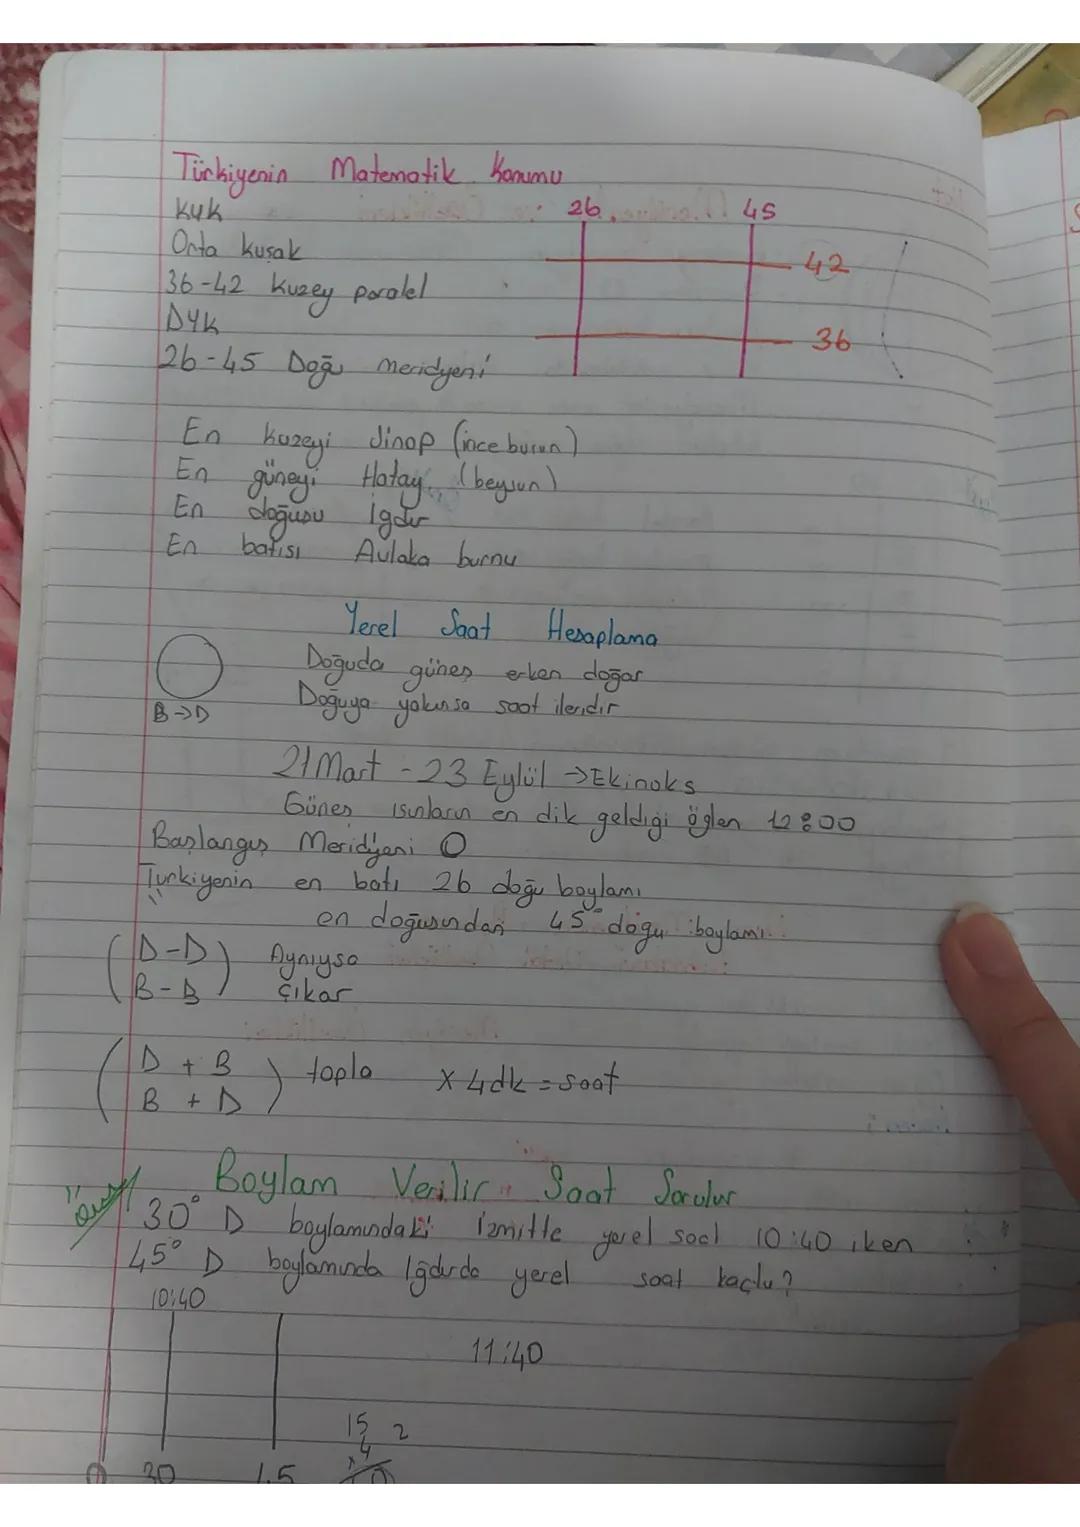 Türkiyenin Matematik Konumu
KYK
Orta kuşak
36-42 Kuzey paralel
DYK
26-45 Doğu meridyeni
26 45
42
36
En kuzeyi Sinop (ince burun)
En güneyi Hatay (beysun)
En doğusu Iğdır
En batısı Avlaka burnu
Yerel Saat Hesaplama
Doğuda güneş erken doğar
Doğuya yakınsa saat ileridir
B→D
21 Mart - 23 Eylül → Ekinoks
Güneş ısınların en dik geldiği öğlen 12:00
Başlangıç Meridyeni 0
Türkiyenin en batı 26 doğu boylamı
en doğusundan 45° doğu boylamı
(D-D) Aynıysa
(B-B) Çıkar
(D + B) topla x 4dk = saat
(B + D)
Boylam Verilir Saat Sorulur
30° D boylamındaki İzmitte yerel saat 10:40 iken
45° D boylamında Iğdırda yerel saat kaçtır?
10:40
11:40
15 2
x 4
0 30 45